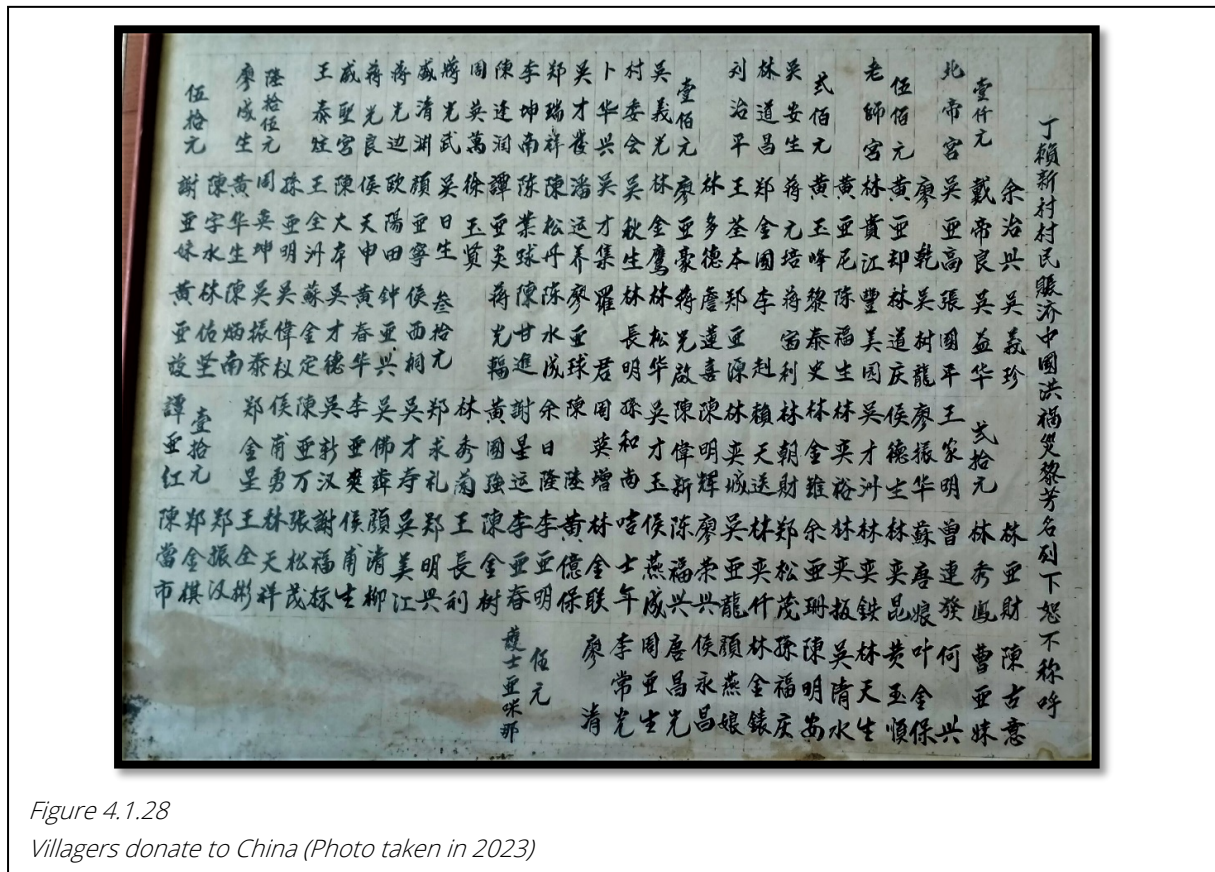 丁賴新村村民賑济中國洪禍災黎芳名列下恕不称呼
壹仟元
北帝宫
伍佰元
老師宫
弍佰元
吴安生
林道昌
刘治平
壹佰元
吴義光
村委会
卜华兴
吴才發
郑瑞祥
李坤南
陳逢润
周英萬
蒋光武
盛清渊
蒋光边
蒋光良
盛聖宫
王泰炷
陸拾伍元
廖成生
伍拾元
余治兴
戴帝良
吴亚高
廖乾
黄亚却
林貴江
黄亚尼
黄玉峰
蒋元培
郑金國
王荃本
林多德
廖亚豪
林金鹰
吴秋生
吴才集
潘运养
陳松丹
陈業球
譚亚炎
徐玉贤
吴日生
顏亚寧
欧陽田
侯天申
陳大本
王全汌
孫亚明
周英坤
黄华生
陳字水
謝亚妹
吴義珍
吴益华
張國平
吴树龍
林道庆
豐美园
陈福生
黎泰史
蒋富利
李赳
郑亚源
詹蓮喜
蒋光啟
林松华
林長明
羅君
廖亚球
陈水成
陳甘進
蒋光輻
叁拾元
侯西桐
钟亚兴
黄春华
吴才德
蘇金定
吴偉权
吴振泰
陳炳南
林佑坚
黄亚設
弍拾元
王家明
廖振华
侯德生
吴才汌
林奕裕
林金雖
林朝財
賴天送
林奕城
陳明輝
陳偉新
吴才玉
孫和尚
周英增
陳陸
余日隆
謝星运
黄國強
林秀蘭
郑求礼
吴才寿
吴佛薛
李亚爽
吴新汉
陳亚万
侯甫勇
郑金星
壹拾元
譚亚红
林亚財
林秀鳳
曾連發
蘇唐娘
林奕昆
林奕鉄
林奕板
余亚珊
郑松茂
林奕仟
吴亚龍
廖荣兴
陈福兴
侯燕成
吉士年
林金联
黄億保
李亚明
李亚春
陳金树
王長利
郑明兴
吴美江
顏清柳
侯甫生
謝福标
張松茂
林天祥
王全彬
郑振汉
郑金棋
陳當市
陳古意
曹亚妹
何兴
叶金保
黄玉順
林天生
吴清水
陳明安
孫福庆
林金錶
顏燕娘
侯永昌
唐昌光
周亚生
李常光
廖清
伍元
護士亚咪那
Figure 4.1.28
Villagers donate to China (Photo taken in 2023)